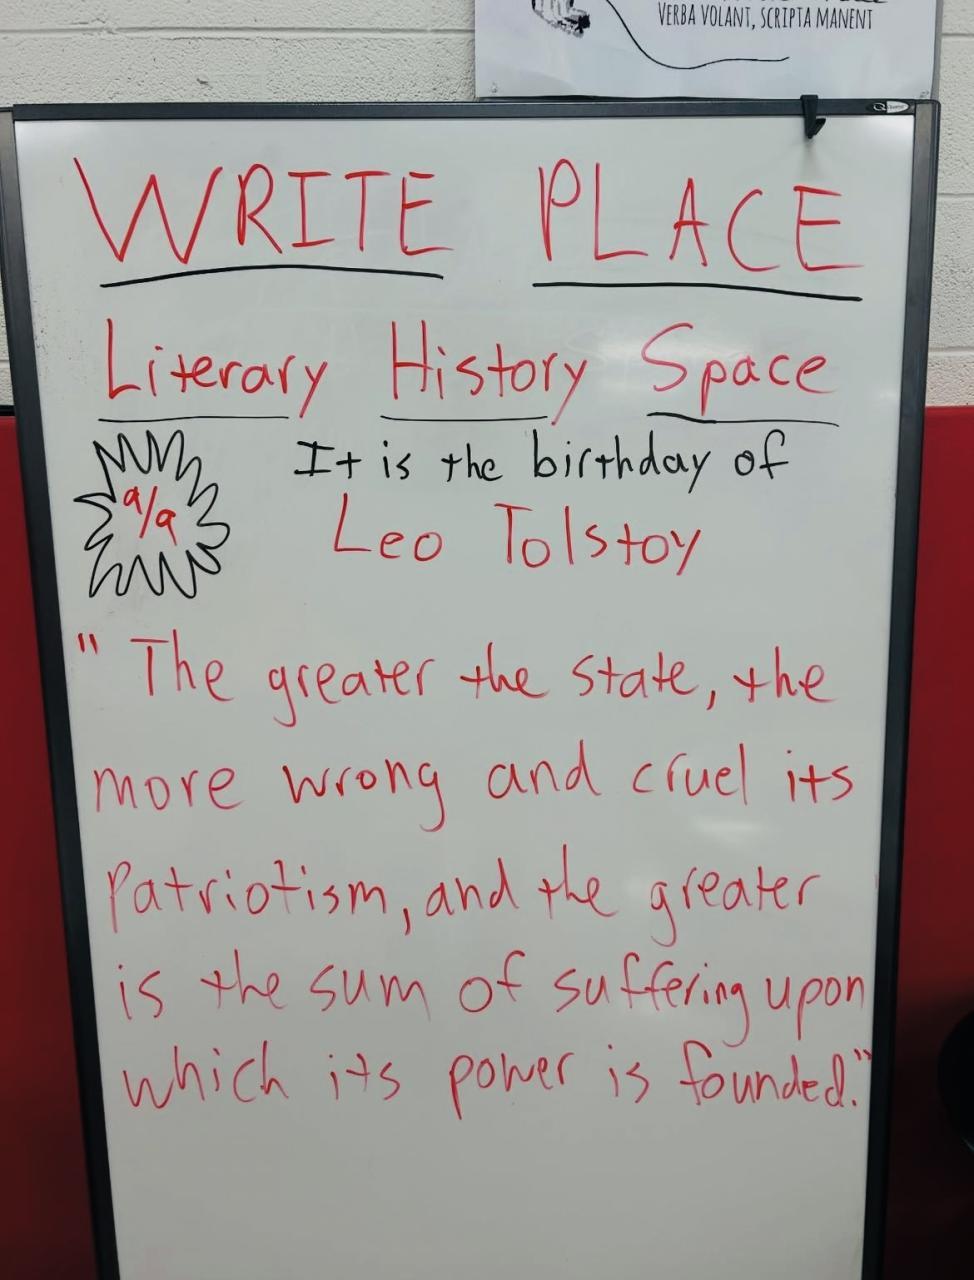 VERBA VOLANT, SCRIPTA MANENT
WRITE PLACE
Literary History Space
9/9
It is the birthday of
Leo Tolstoy
"The greater the state, the
more wrong and cruel its
patriotism, and the greater
is the sum of suffering upon
which its power is founded."